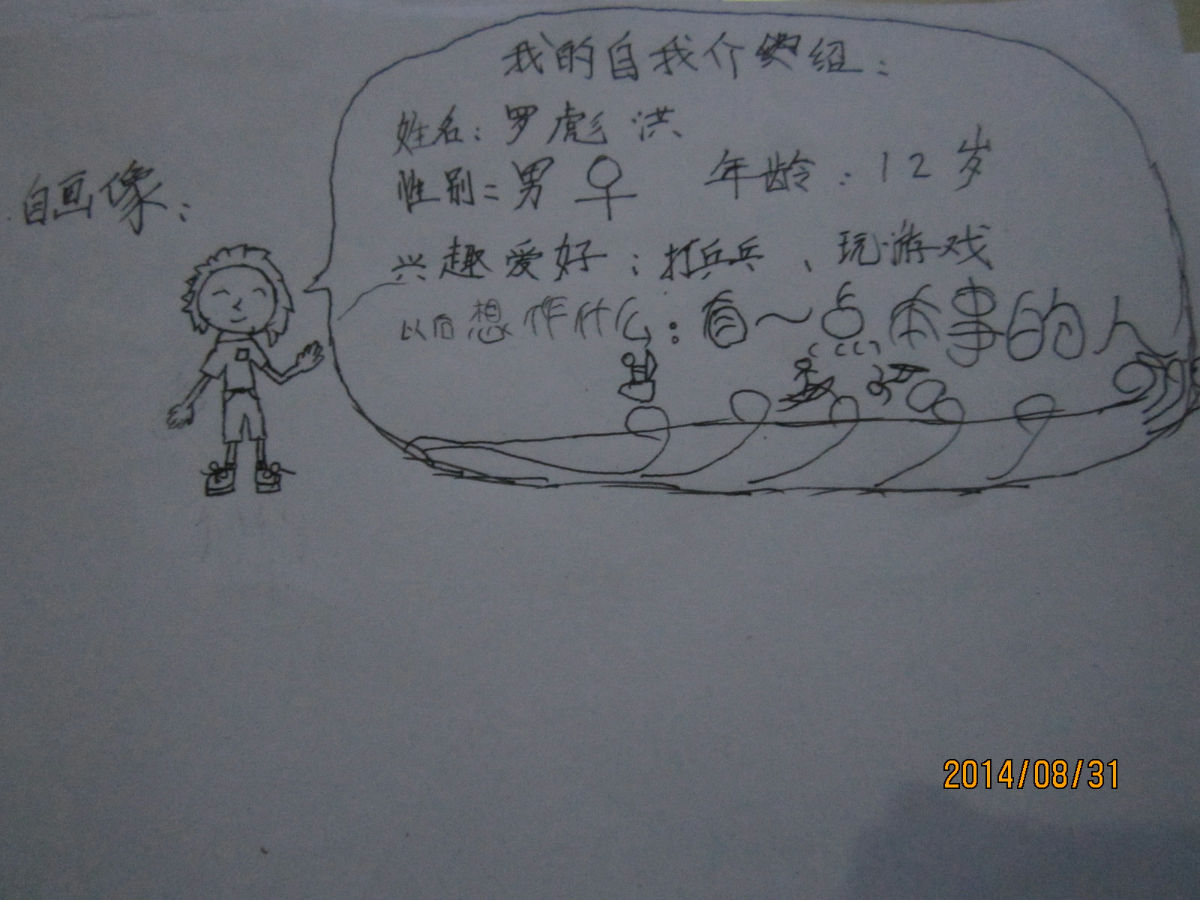 我的自我介绍:
姓名:罗彪洪
性别:男♀ 年龄:12岁
自画像:
兴趣爱好:打乒乓、玩游戏
以后想作什么:有一点本事的人
2014/08/31